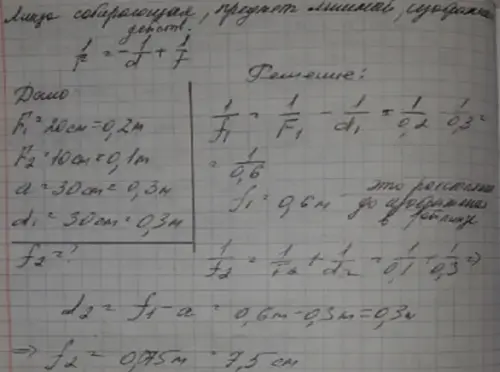 Линза собирающая, предмет мнимый, изображ
действ.
1/F = -1/d + 1/f
Решение:
Дано
F₁ = 20см = 0,2м
F₂ = 10см = 0,1м
a = 30см = 0,3м
d₁ = 30см = 0,3м
f₂ = ?
1/f₁ = 1/F₁ - 1/d₁ = 1/0,2 - 1/0,3 =
= 1/0,6
f₁ = 0,6м это расстояние
до изображения
в
1/f₂ = 1/F₂ + 1/d₂ = 1/0,1 + 1/0,3 =>
d₂ = f₁ - a = 0,6м - 0,3м = 0,3м
=> f₂ = 0,075м = 7,5 см